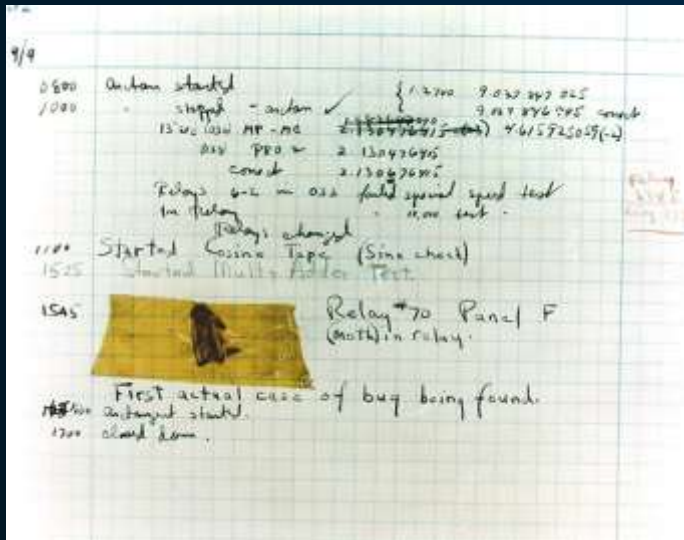 9/9
0800 antan started
1000 " stopped - antan ✓ { 1.2700 9.037 847 025
9.037 846 995 correct
13" uc (032) MP - MC 4.615925059(-2)
033 PRO 2 2.130476415
correct 2.130676415
Relays 6-2 in 033 failed special speed test
in relay " 11,000 test.
Relays changed
1100 Started Cosine Tape (Sine check)
1525 Started Mult+ Adder Test.
1545 Relay #70 Panel F
(moth) in relay.
First actual case of bug being found.
antangent started.
1700 closed down.